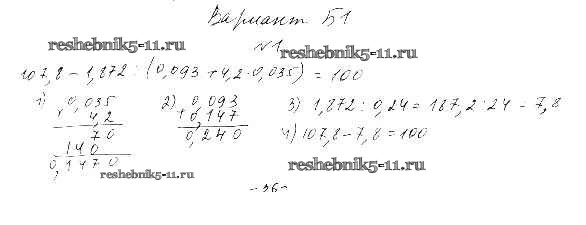 Вариант Б1
reshebnik5-11.ru
№1
reshebnik5-11.ru
107,8 - 1,872 : (0,093 + 4,2 · 0,035) = 100
1) 0,035 2) 0,093 3) 1,872 : 0,24 = 187,2 : 24 = 7,8
× 4,2 + 0,147 4) 107,8 - 7,8 = 100
70 0,240
140
0,1470
reshebnik5-11.ru
reshebnik5-11.ru
- 36 -